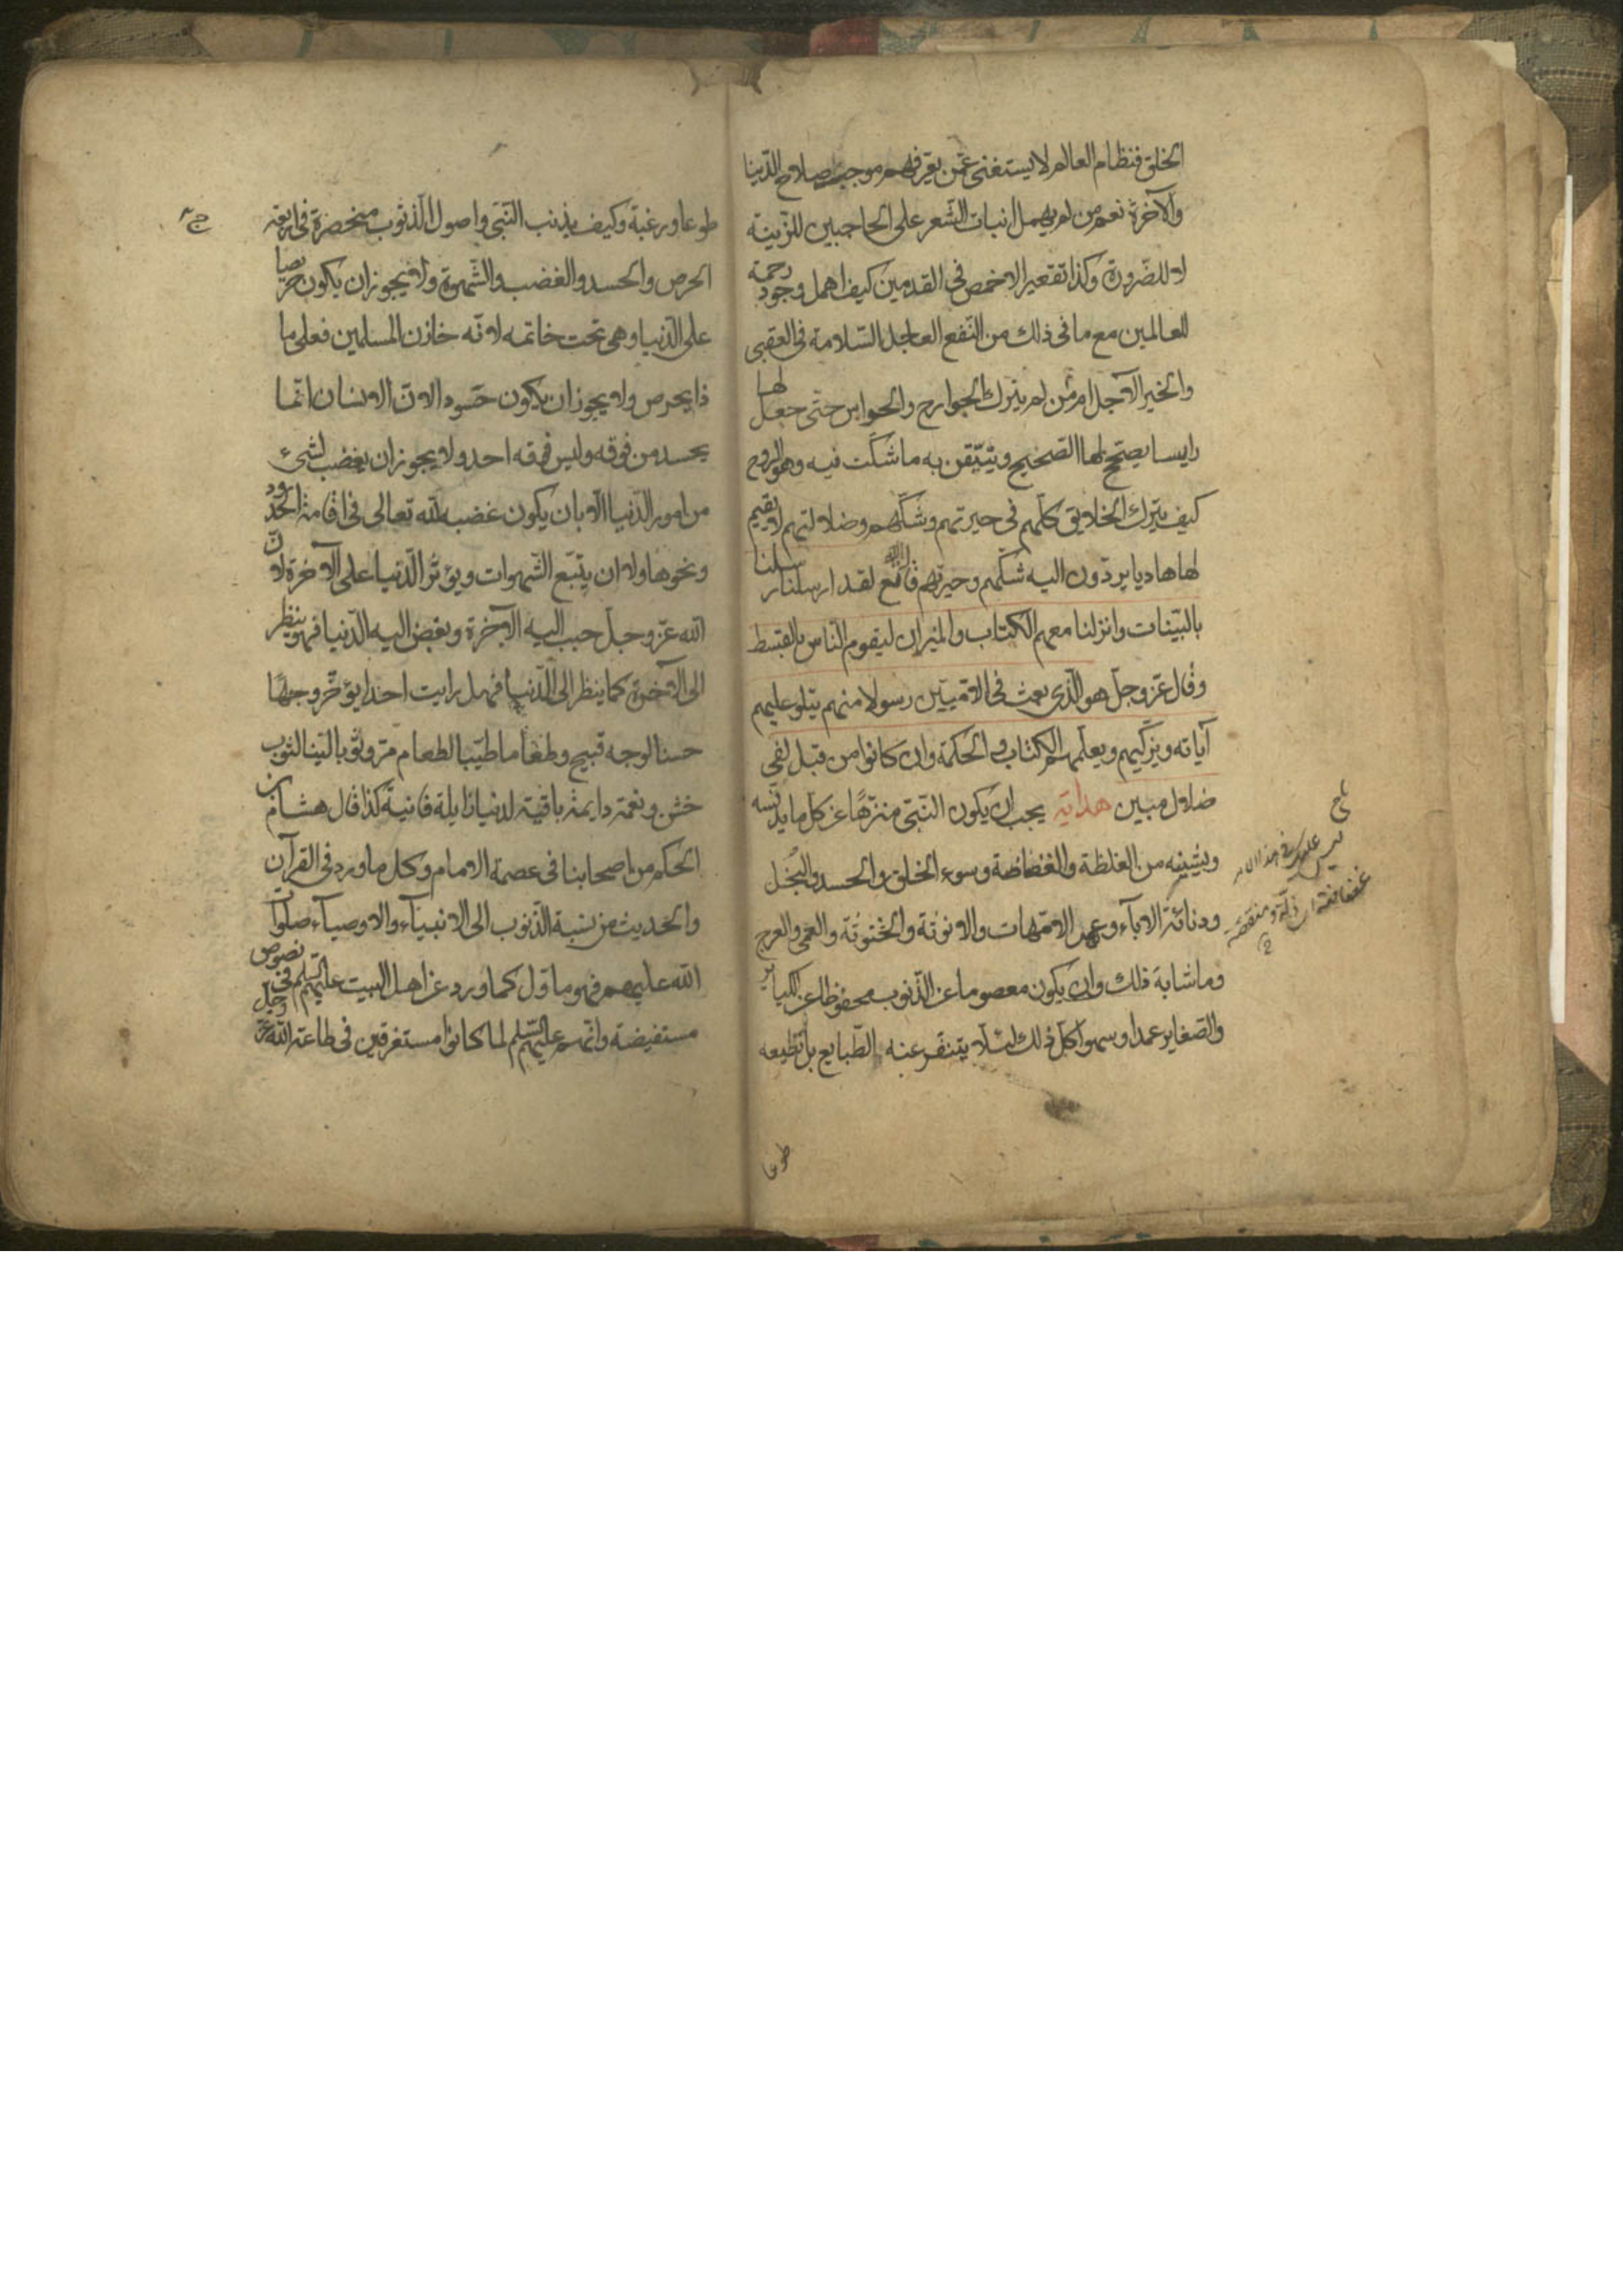 الخلق فنظام العالم لا يستغنى عمّن يعرفهم موجب صلاح الدّنيا
والآخرة نعم من لم يهمل انبات الشّعر على الحاجبين للزّينة
لا للضّرورة وكذا تقعير الاخمص فى القدمين كيف اهمل وجود رحمة
للعالمين مع ما فى ذلك من النّفع العاجل السّلامة فى العقبى
والخير الآجل ام من لم يترك الجوارح والحواس حتّى جعل لها
رايسا يصحّح لها الصّحيح ويتيّقن به ما شكّت فيه وهو الروح
كيف يترك الخلايق كلّهم فى حيرتهم وشكّهم وضلالتهم لا يقيم
لها هاديا يردّون اليه شكّهم وحيرتهم قال الله تع لقد ارسلنا رسلنا
بالبيّنات وانزلنا معهم الكتاب والميزان ليقوم النّاس بالقسط
وقال عزّ وجلّ هو الّذى بعث فى الامّيّين رسولا منهم يتلو عليهم
آياته ويزكّيهم ويعلّمهم الكتاب والحكمة وان كانوا من قبل لفى
ضلال مبين هداية يجب ان يكون النّبىّ منزّهًا عن كل ما يدنّسه
ويشينه من الغلظة والفظاظة وسوء الخلق والحسد والبُخل
ودنائة الاباء وعهر الامّهات والانوثة والخنوثة والعمى والعرج
وما شابه ذلك وان يكون معصوما عن الذّنوب محفوظا عن الكباير
والصّغاير عمدا وسهوا كلّ ذلك لئلّا يتنفّر عنه الطّبايع بل تطيعه
طوعا
غضاضة اى ذلّة ومنقصة
طوعا ورغبة وكيف يذنب النّبّى واصول الذّنوب منحصرة فى اربعة
الحرص والحسد والغضب والشّهوة ولا يجوز ان يكون حريصا
على الدّنيا وهى تحت خاتمه لانّه خازن المسلمين فعلى ما
ذا يحرص ولا يجوز ان يكون حسودا لانّ الانسان انّما
يحسد من فوقه وليس فوقه احد ولا يجوز ان يغضب لشىء
من امور الدّنيا الّا بان يكون غضبه لله تعالى فى اقامة الحدود
ونحوها ولا ان يتّبع الشّهوات ويؤثر الدّنيا على الآخرة لانّ
الله عزّ وجلّ حبب اليه الآخرة وبغض اليه الدّنيا فهو ينظر
الى الآخرة كما ينظر الى الدّنيا فهل رايت احدا يؤخّر وجهًا
حسنا لوجه قبيح وطعاما طيّبا لطعام مرّ وثوبا ليّنا لثوب
خشن ونعمة دايمة باقية لدنيا زايلة فانية كذا قال هشام بن
الحكم من اصحابنا فى عصمة الامام وكل ما ورد فى القرآن
والحديث من نسبة الذّنوب الى الانبيآء والاوصيآء صلوات
الله عليهم فهو ماوّل كما ورد عن اهل البيت عليهم السّلم فى نصوص
مستفيضة وانّهم عليهم السّلم لما كانوا مستغرقين فى طاعة الله عزّ وجلّ